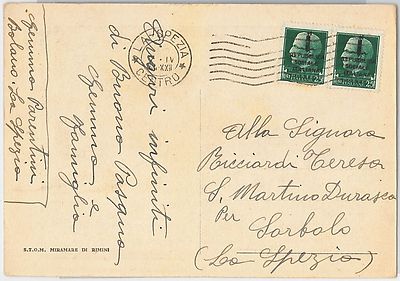 Gemma Parentini
Bolano. La Spezia
Auguri infiniti
di Buona Pasqua
Gemma e
famiglia
LA SPEZIA
CENTRO
Alla Signora
Ricciardi Teresa
S. Martino Durasca
Per
Sorbolo
(La Spezia)
S.T.O.M. MIRAMARE DI RIMINI